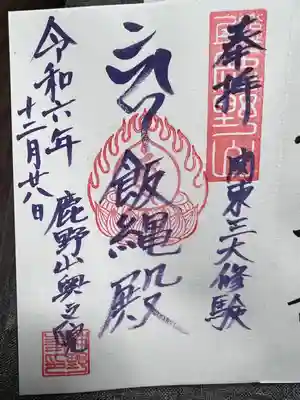 奉拝
関東三大修験
飯縄殿
令和六年
十二月廿八日
鹿野山奥之院